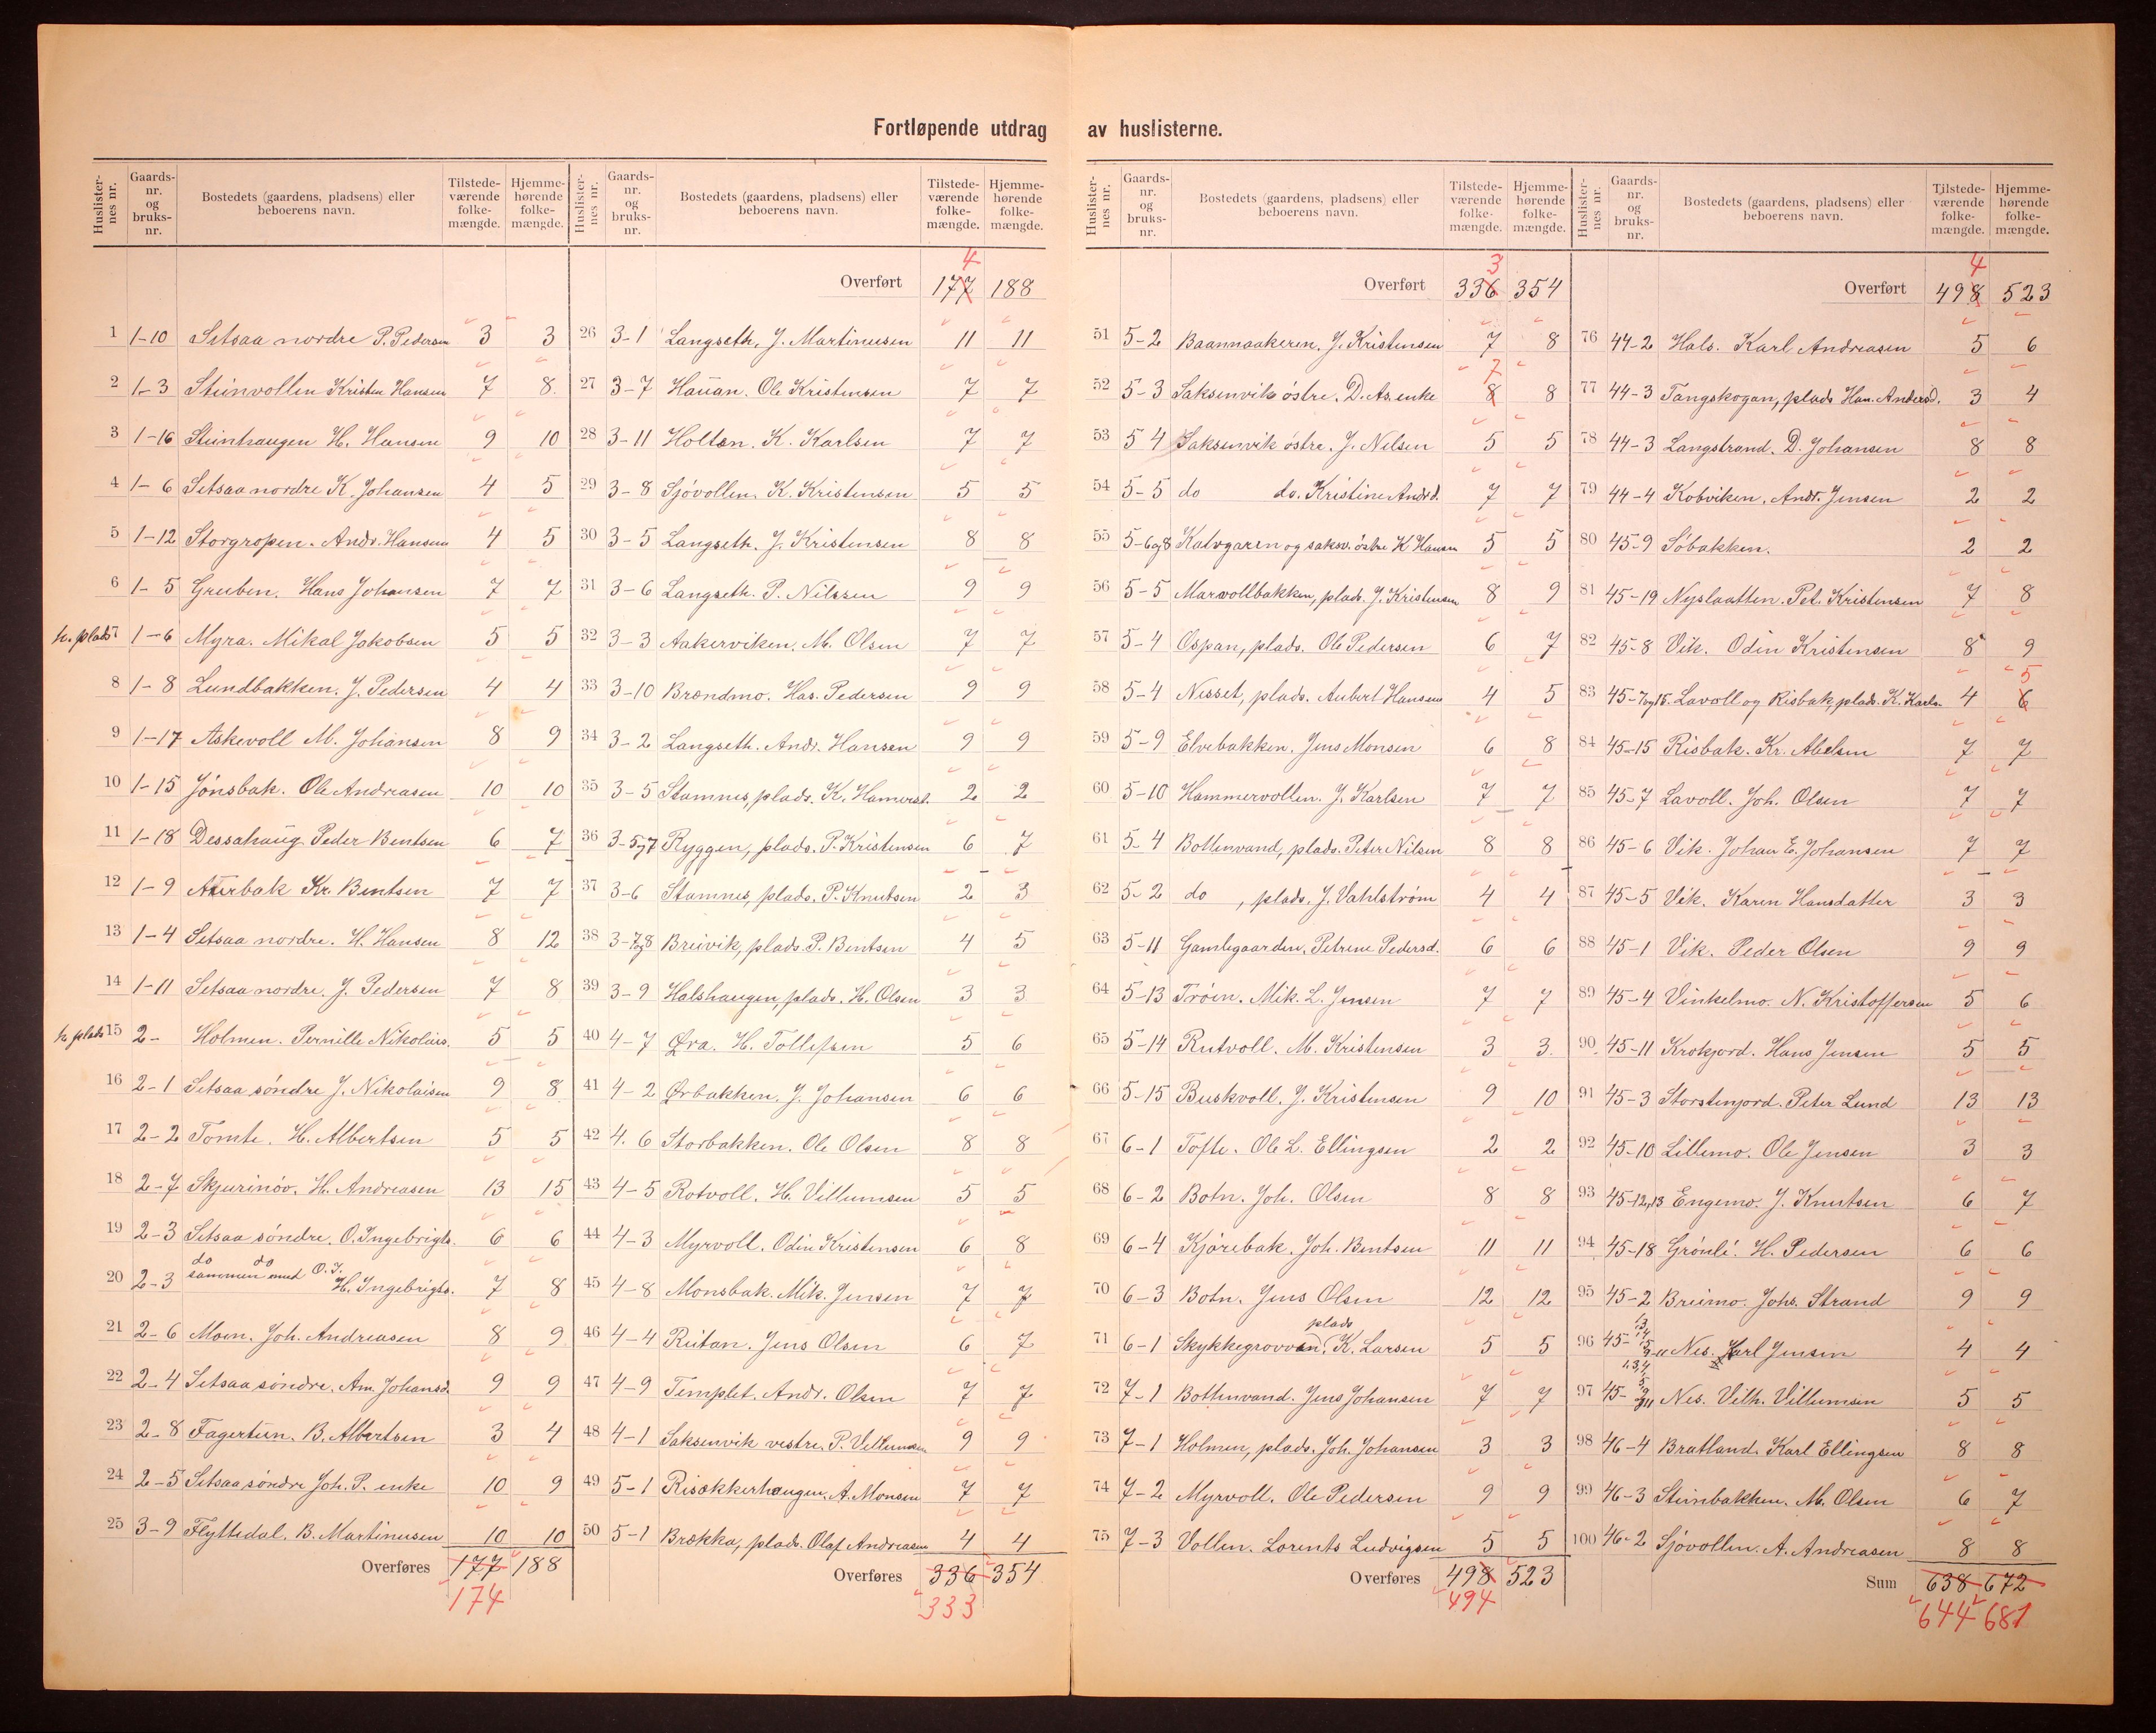 Fortløpende utdrag av huslisterne.
Huslister-nes nr. | Gaards-nr. og bruks-nr. | Bostedets (gaardens, pladsens) eller beboerens navn. | Tilstede-værende folke-mængde. | Hjemme-hørende folke-mængde.
1 1-10 Setsaa nordre P. Pedersen 3 3
2 1-3 Steinvollen Kristen Hansen 7 8
3 1-16 Steinhaugen H. Hansen 9 10
4 1-6 Setsaa nordre K. Johansen 4 5
5 1-12 Storgropen. Andr. Hansen 4 5
6 1-5 Gruben. Hans Johansen 7 7
h. plads 7 1-6 Myra. Mikal Jakobsen 5 5
8 1-8 Lundbakken. J. Pedersen 4 4
9 1-17 Askevoll M. Johansen 8 9
10 1-15 Jónsbak. Ole Andreasen 10 10
11 1-18 Dessahaug Peder Bentsen 6 7
12 1-9 Aurbak Kr. Bentsen 7 7
13 1-4 Setsaa nordre. H. Hansen 8 12
14 1-11 Setsaa nordre. J. Pedersen 7 8
h. plads 15 2- Holmen. Pernille Nikolais. 5 5
16 2-1 Setsaa söndre J. Nikolaisen 9 8
17 2-2 Tomte. H. Albertsen 5 5
18 2-7 Skjurinöv. H. Andreasen 13 15
19 2-3 Setsaa söndre. O. Ingebrigts. 6 6
20 2-3 do do sammen med O. I. H. Ingebrigts. 7 8
21 2-6 Moen. Joh. Andreasen 8 9
22 2-4 Setsaa söndre. Am. Johansd. 9 9
23 2-8 Fagertun. B. Albertsen 3 4
24 2-5 Setsaa söndre Joh. P. enke 10 9
25 3-9 Flyttedal. B. Martinusen 10 10
Overføres 177 188
174
Huslister-nes nr. | Gaards-nr. og bruks-nr. | Bostedets (gaardens, pladsens) eller beboerens navn. | Tilstede-værende folke-mængde. | Hjemme-hørende folke-mængde.
4
Overført 177 188
26 3-1 Langseth, J. Martinusen 11 11
27 3-7 Hauan. Ole Kristensen 7 7
28 3-11 Holten. K. Karlsen 7 7
29 3-8 Sjövollen. K. Kristensen 5 5
30 3-5 Langseth. J. Kristensen 8 8
31 3-6 Langseth. P. Nilssen 9 9
32 3-3 Aakerviken. M. Olsen 7 7
33 3-10 Brændmo. Has. Pedersen 9 9
34 3-2 Langseth. Andr. Hansen 9 9
35 3-5 Stamnes, plads. K. Hamerst. 2 2
36 3-5 og 7 Ryggen, plads. P. Kristensen 6 7
37 3-6 Stamnes, plads. P. Knutsen 2 3
38 3-7 og 8 Breivik, plads. P. Bentsen 4 5
39 3-9 Halshaugen, plads. H. Olsen 3 3
40 4-7 Øra. H. Tollefsen 5 6
41 4-2 Ørbakken. J. Johansen 6 6
42 4.6 Storbakken. Ole Olsen 8 8
43 4-5 Rotvoll. H. Villumsen 5 5
44 4-3 Myrvoll. Odin Kristensen 6 8
45 4-8 Monsbak. Mik. Jensen 7 7
46 4-4 Rutan. Jens Olsen 6 7
47 4-9 Templet. Andr. Olsen 7 7
48 4-1 Saksenvik vestre. P. Villumsen 9 9
49 5-1 Risækkerhaugen. A. Monsen 7 7
50 5-1 Brækka, plads. Olaf Andreasen 4 4
Overføres 336 354
333
Huslister-nes nr. | Gaards-nr. og bruks-nr. | Bostedets (gaardens, pladsens) eller beboerens navn. | Tilstede-værende folke-mængde. | Hjemme-hørende folke-mængde.
3
Overført 336 354
51 5-2 Baannaakeren. J. Kristensen 7 8
52 5-3 Saksenvik östre. D. As. enke 8 7 8
53 5 4 Saksenvik östre. J. Nilsen 5 5
54 5-5 do do. Kristine Andrd. 7 7
55 5-6 og 8 Kalvgaren og saksv. östre K Hansen 5 5
56 5-5 Marvollbakken, plads. J. Kristensen 8 9
57 5-4 Ospan, plads. Ole Pedersen 6 7
58 5-4 Nesset, plads. Aubert Hansen 4 5
59 5-9 Elvebakken. Jens Monsen 6 8
60 5-10 Hammervollen. J. Karlsen 7 7
61 5-4 Bottenvand, plads. Peter Nilsen 8 8
62 5-2 do , plads. J. Vahlström 4 4
63 5-11 Gamlegaarden. Petrine Pedersd. 6 6
64 5-13 Tröen. Mik. L. Jensen 7 7
65 5-14 Rutvoll. M. Kristensen 3 3.
66 5-15 Buskvoll. J. Kristensen 9 10
67 6-1 Tofte. Ole L. Ellingsen 2 2
68 6-2 Botn. Joh. Olsen 8 8
69 6-4 Kjörebak. Joh. Bentsen 11 11
70 6-3 Botn. Jens Olsen 12 12
71 6-1 Skykkegrovvan, plads K. Larsen 5 5
72 7-1 Bottenvand. Jens Johansen 7 7
73 7-1 Holmen, plads. Joh. Johansen 3 3
74 7-2 Myrvoll. Ole Pedersen 9 9
75 7-3 Vollen. Lorents Ludvigsen 5 5
Overføres 498 523
494
Huslister-nes nr. | Gaards-nr. og bruks-nr. | Bostedets (gaardens, pladsens) eller beboerens navn. | Tilstede-værende folke-mængde. | Hjemme-hørende folke-mængde.
4
Overført 498 523
76 44-2 Hals. Karl Andreasen 5 6
77 44-3 Tangskogan, plads Han. Andersd. 3 4
78 44-3 Langstrand. D. Johansen 8 8
79 44-4 Kobviken. Andr. Jensen 2 2
80 45-9 Söbakken. 2 2
81 45-19 Nyslaatten. Pet. Kristensen 7 8
82 45-8 Vik. Odin Kristensen 8 9
83 45-7 og 15. Lavoll og Risbak, plads. K. Karls. 4 6 5
84 45-15 Risbak. Kr. Abelsen 7 7
85 45-7 Lavoll. Joh. Olsen 7 7
86 45-6 Vik. Johan E. Johansen 7 7
87 45-5 Vik. Karen Hansdatter 3 3
88 45-1 Vik. Peder Olsen 9 9
89 45-4 Vinkelmo. N. Kristoffersen 5 6
90 45-11 Krokjord. Hans Jensen 5 5
91 45-3 Storstenjord. Peter Lund 13 13
92 45-10 Lillemo. Ole Jensen 3 3
93 45-12, 13 Engemo. J. Knutsen 6 7
94 45-18 Grönli. H. Pedersen 6 6
95 45-2 Breimo. Johs. Strand 9 9
96 45- Nes. Karl Jensen 4 4
97 45- Nes. Vilh. Villumsen 5 5
98 46-4 Bratland. Karl Ellingsen 8 8
99 46-3 Steinbakken. M. Olsen 6 7
100 46-2 Sjövollen. A. Andreasen 8 8
Sum 638 672
644 681